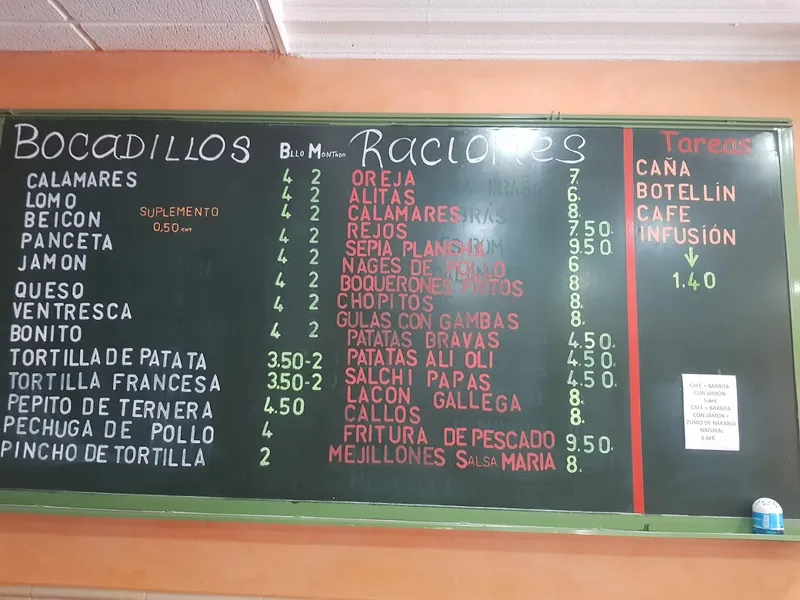 BOCADILLOS BLLO MONTADO
CALAMARES 4 2
LOMO 4 2
BEICON 4 2
SUPLEMENTO
0,50
PANCETA 4 2
JAMON 4 2
QUESO 4 2
VENTRESCA 4 2
BONITO 4 2
TORTILLA DE PATATA 3.50-2
TORTILLA FRANCESA 3.50-2
PEPITO DE TERNERA 4.50
PECHUGA DE POLLO 4
PINCHO DE TORTILLA 2
RACIONES
OREJA 7.
ALITAS 6.
CALAMARES 8.
REJOS 7.50.
SEPIA PLANCHA 9.50
NAGES DE POLLO 6
BOQUERONES FRITOS 8.
CHOPITOS 8.
GULAS CON GAMBAS 8.
PATATAS BRAVAS 4.50.
PATATAS ALI OLI 4.50.
SALCHI PAPAS 4.50.
LACON GALLEGA 8.
CALLOS 8.
FRITURA DE PESCADO 9.50.
MEJILLONES SALSA MARIA 8.
Tareas
CAÑA
BOTELLÍN
CAFE
INFUSIÓN
↓
1.40
CAFÉ + BARRITA
CON JAMÓN
CAFÉ + BARRITA
CON JAMÓN +
ZUMO DE NARANJA
NATURAL